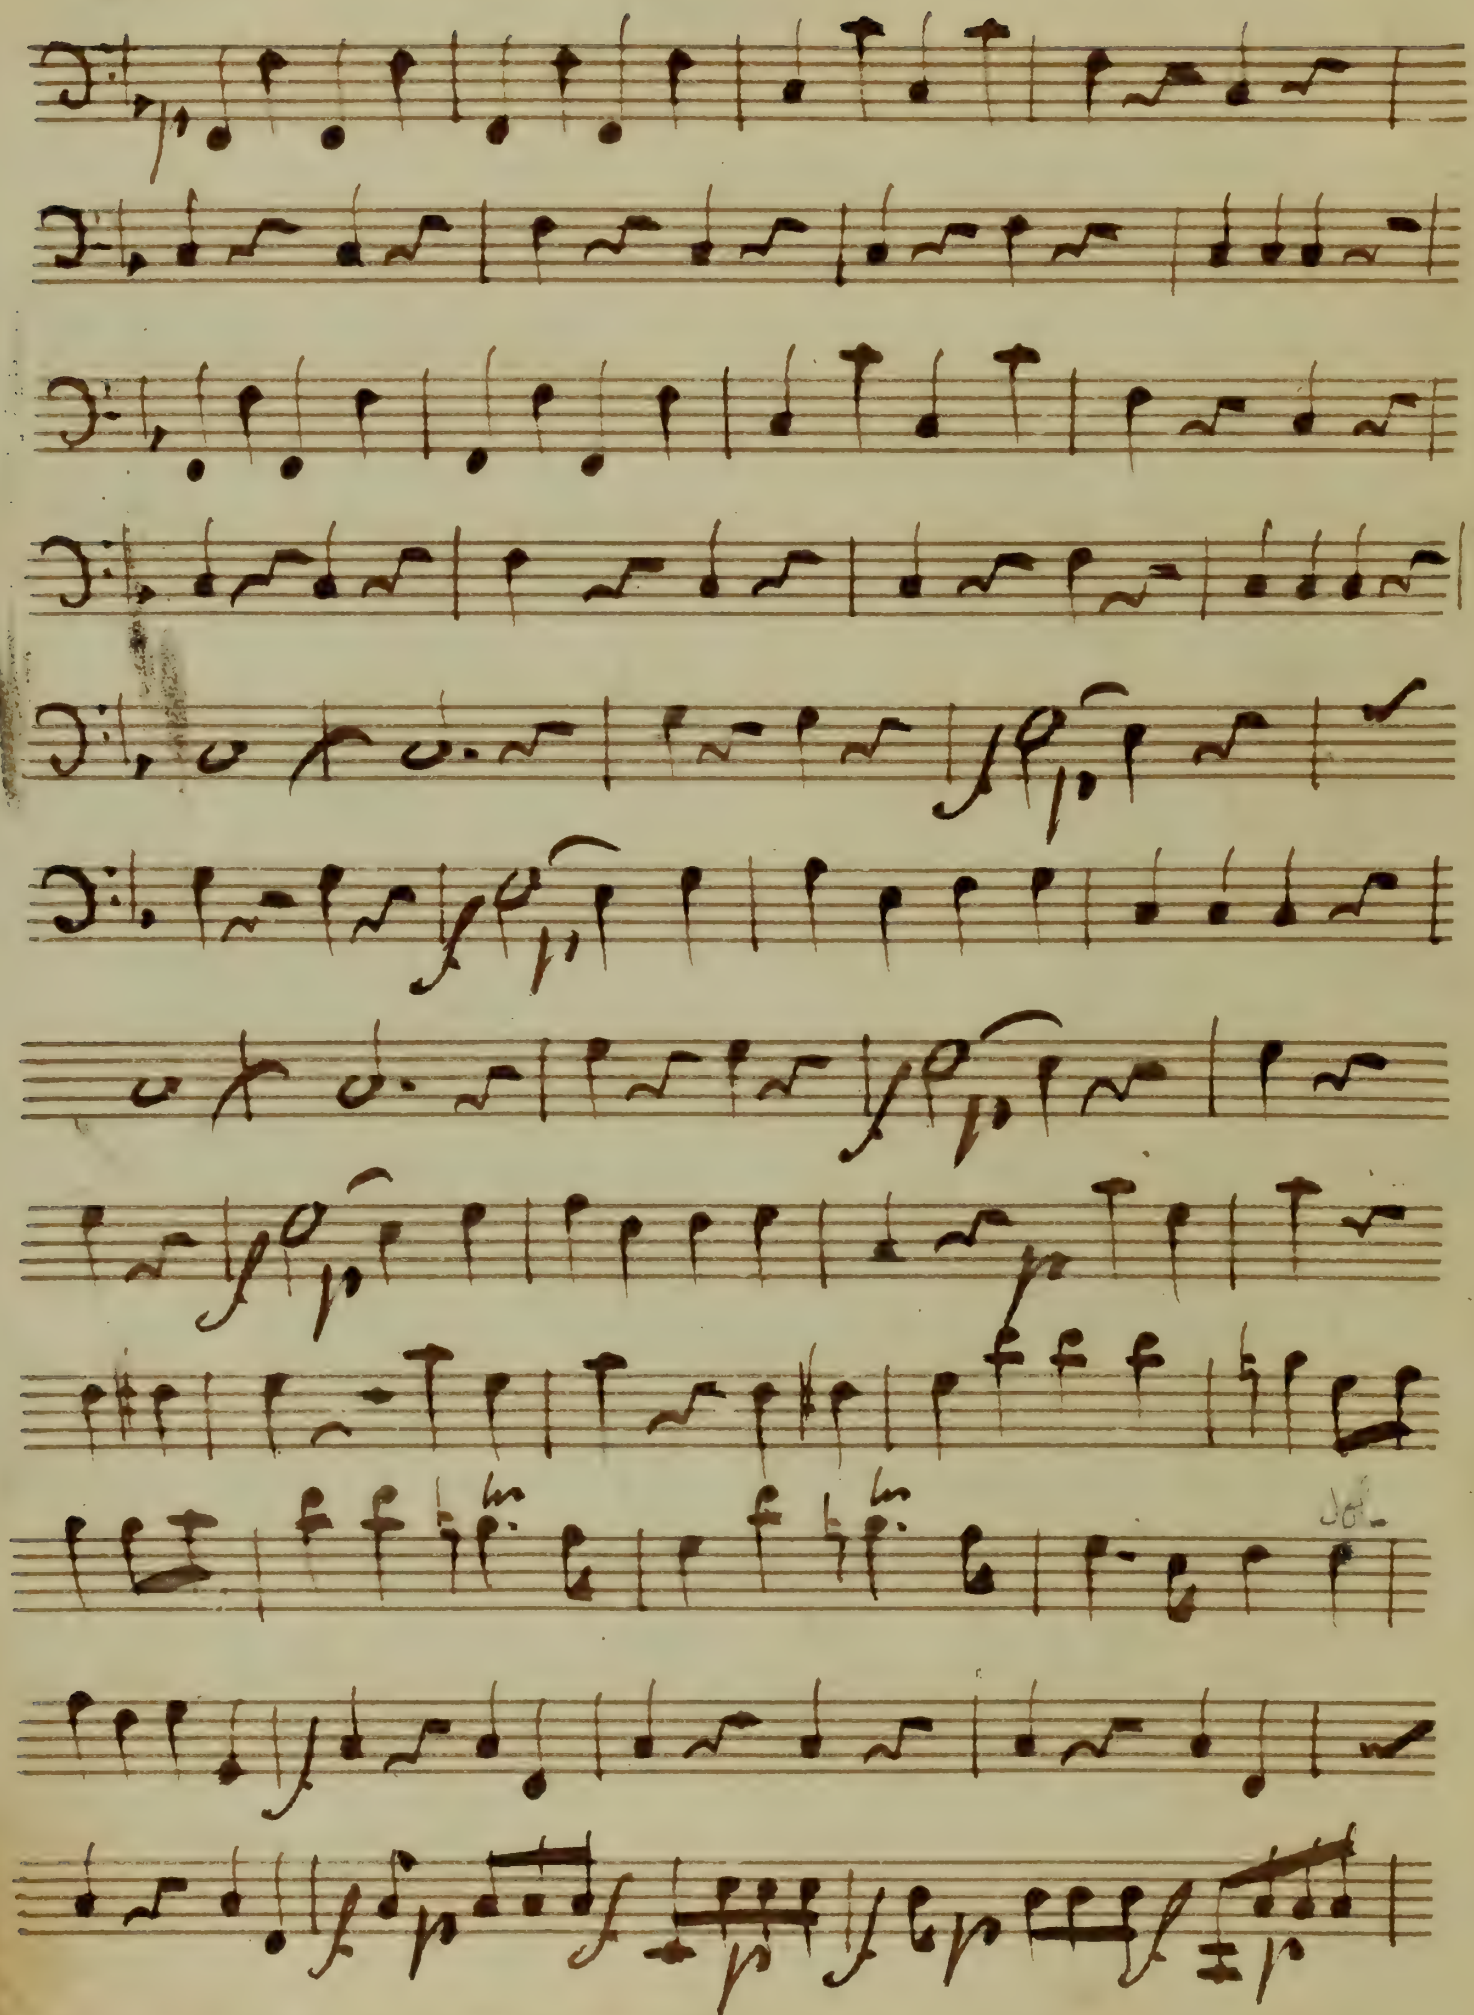 p
f p
f p
f p
f p p
tr tr Sol
f
f p f p f p f p